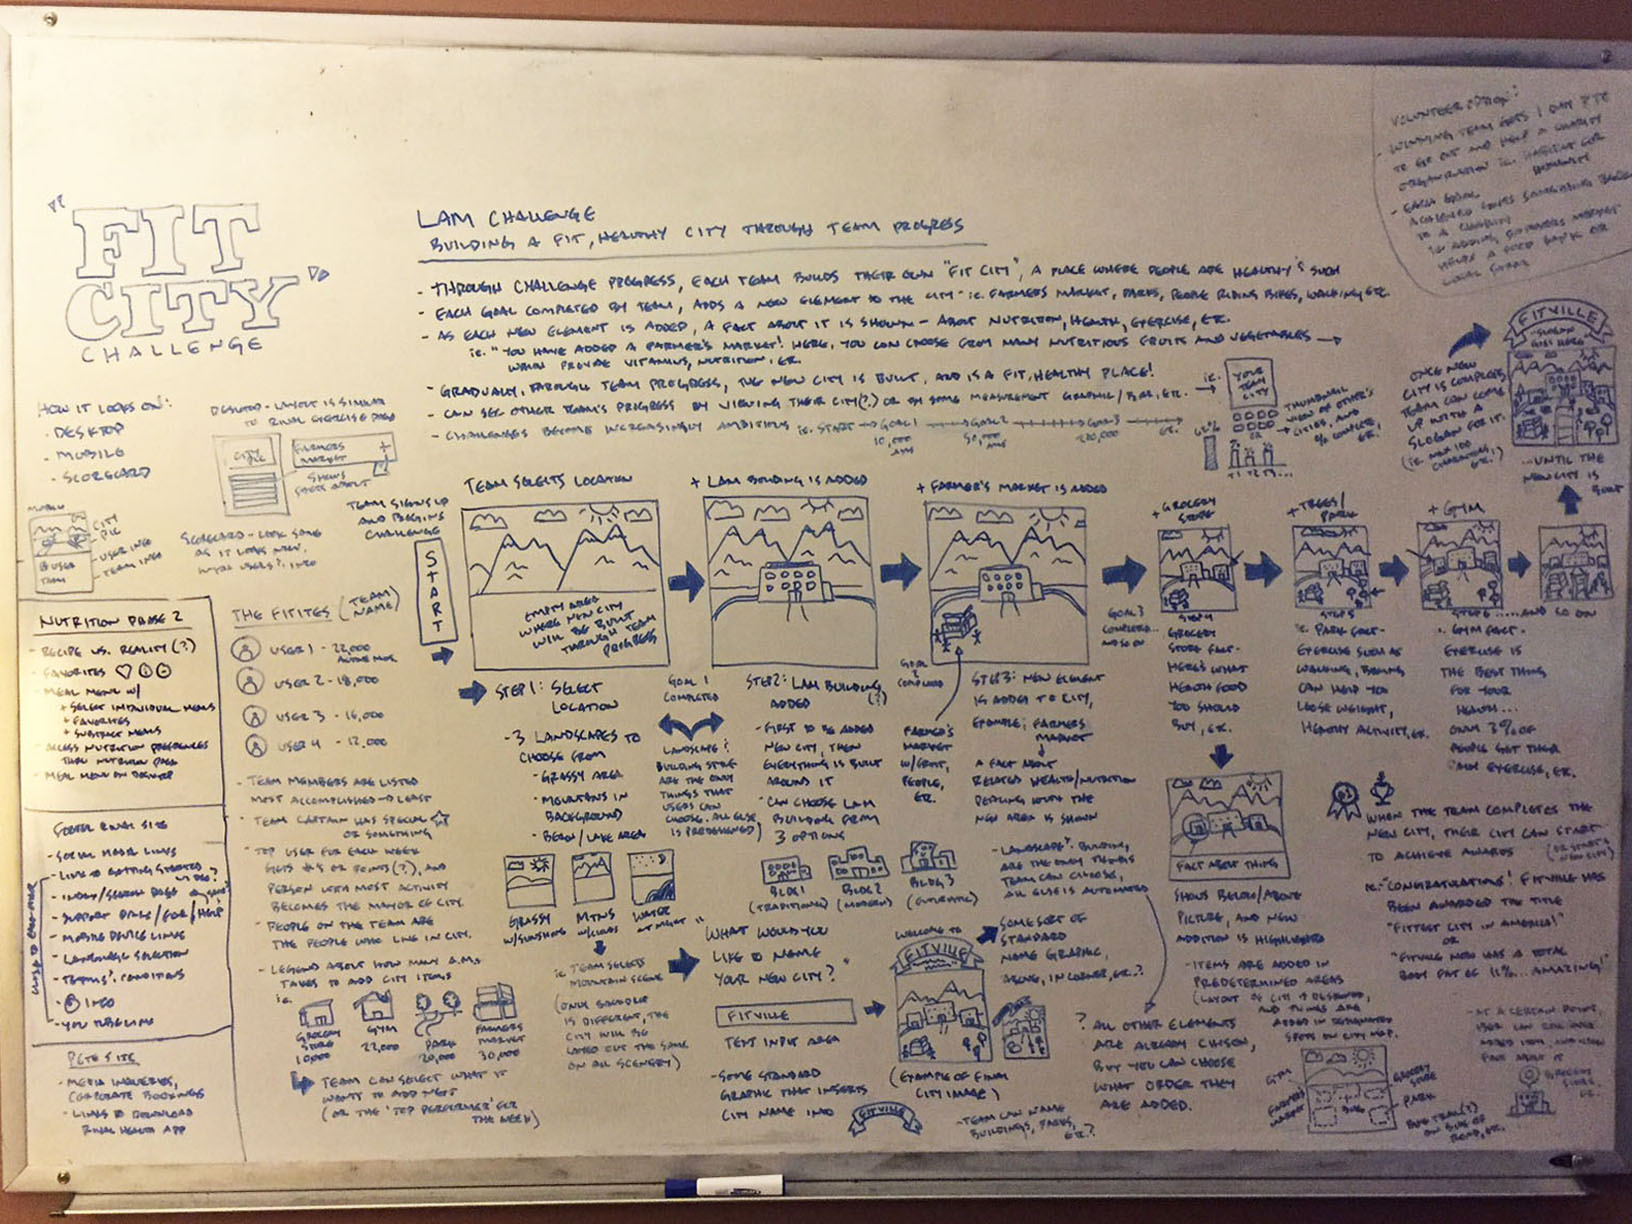 "FIT
CITY"
CHALLENGE
LAM CHALLENGE
BUILDING A FIT, HEALTHY CITY THROUGH TEAM PROGRESS
- THROUGH CHALLENGE PROGRESS, EACH TEAM BUILDS THEIR OWN "FIT CITY", A PLACE WHERE PEOPLE ARE HEALTHY & SUCH
- EACH GOAL COMPLETED BY TEAM, ADDS A NEW ELEMENT TO THE CITY - IE. FARMERS MARKET, PARKS, PEOPLE RIDING BIKES, WALKING, ETC.
- AS EACH NEW ELEMENT IS ADDED, A FACT ABOUT IT IS SHOWN - ABOUT NUTRITION, HEALTH, EXERCISE, ETC.
IE. "YOU HAVE ADDED A FARMER'S MARKET! HERE, YOU CAN CHOOSE FROM MANY NUTRITIOUS FRUITS AND VEGETABLES
WHICH PROVIDE VITAMINS, NUTRITION, ETC.
- GRADUALLY, THROUGH TEAM PROGRESS, THE NEW CITY IS BUILT, AND IS A FIT, HEALTHY PLACE!
- CAN SEE OTHER TEAM'S PROGRESS BY VIEWING THEIR CITY(?) OR BY SOME MEASUREMENT GRAPHIC/BAR, ETC.
- CHALLENGES BECOME INCREASINGLY AMBITIOUS IE. START GOAL 1 GOAL 2 GOAL 3 ETC.
10,000
50,000
IE.
YOUR
TEAM
CITY
THUMBNAIL
VIEW OF OTHER'S
CITIES, AND
% COMPLETE,
ETC.
VOLUNTEER OPTION:
- WINNING TEAM GETS 1 DAY PTO
TO GO OUT AND HELP A CHARITY
ORGANIZATION IE. HABITAT FOR
HUMANITY
- EACH GOAL
TO A CHARITY
HELPS A FOOD BANK OR
ONCE NEW
CITY IS COMPLETE,
TEAM CAN COME
UP WITH A
SLOGAN FOR IT.
(IE. MAX 100
CHARACTERS,
ETC.)
FITVILLE
"SLOGAN
GOES HERE"
...UNTIL THE
NEW CITY IS
BUILT
HOW IT LOOKS ON:
- DESKTOP
- MOBILE
- SCORECARD
DESKTOP - LAYOUT IS SIMILAR
TO RIVAL EXERCISE PAGE
CITY
PIC
FARMERS
MARKET
+
MOBILE
CITY
PIC
USER INFO
TEAM INFO
USER
TEAM
SCORECARD - LOOK SAME
AS IT LOOKS NOW,
TEAM SIGNS UP
AND BEGINS
CHALLENGE
START
TEAM SELECTS LOCATION
EMPTY AREA
WHERE NEW CITY
WILL BE BUILT
THROUGH TEAM
PROGRESS
+ LAM BUILDING IS ADDED
+ FARMER'S MARKET IS ADDED
+ GROCERY
STORE
+ TREES/
PARK
+ GYM
STEP 1: SELECT
LOCATION
- 3 LANDSCAPES TO
CHOOSE FROM
- GRASSY AREA
- MOUNTAINS IN
BACKGROUND
- BEACH/LAKE AREA
GOAL 1
COMPLETED
LANDSCAPE &
BUILDING STYLE
ARE THE ONLY
THINGS THAT
USERS CAN
CHOOSE. ALL ELSE
IS PREDESIGNED
STEP 2: LAM BUILDING
ADDED (?)
- FIRST TO BE ADDED
NEW CITY, THEN
EVERYTHING IS BUILT
AROUND IT
- CAN CHOOSE LAM
BUILDING FROM
3 OPTIONS
GOAL
2
COMPLETED
FARMER'S
MARKET
W/FRUIT,
PEOPLE,
ETC.
STEP 3: NEW ELEMENT
IS ADDED TO CITY,
EXAMPLE; FARMERS
MARKET
A FACT ABOUT
RELATED HEALTH/NUTRITION
DEALING WITH THE
NEW AREA IS SHOWN
- LANDSCAPE & BUILDING
ARE THE ONLY THINGS
TEAM CAN CHOOSE,
ALL ELSE IS AUTOMATED
GOAL 3
COMPLETED...
AND SO ON
STEP 4
GROCERY
STORE FACT -
HERE'S WHAT
HEALTH FOOD
YOU SHOULD
BUY, ETC.
STEP 5
PARK FACT -
EXERCISE SUCH AS
WALKING, BIKING
CAN HELP YOU
LOSE WEIGHT,
HEALTHY ACTIVITY, ETC.
STEP 6 .....AND SO ON
GYM FACT -
EXERCISE IS
THE BEST THING
FOR YOUR
HEALTH...
ONLY 3% OF
PEOPLE GET THEIR
DAILY EXERCISE, ETC.
NUTRITION PHASE 2
- RECIPE VS. REALITY (?)
- FAVORITES
- MEAL MENU W/
+ SELECT INDIVIDUAL MEALS
+ FAVORITES
+ SUBTRACT MEALS
- ACCESS NUTRITION PREFERENCES
THRU NUTRITION PAGE
- MEAL MENU ON DESKTOP
FOOTER RIVAL SITE
- SOCIAL MEDIA LINKS
- LINK TO GETTING STARTED
- INDEX/SEARCH PAGE
- SUPPORT EMAIL/FAQ/HELP
- MOBILE DEVICE LINKS
- LANGUAGE SELECTION
- TERMS & CONDITIONS
- INFO
- YOUTUBE LINK
PETE SITE
- MEDIA INQUIRIES,
CORPORATE BOOKINGS
- LINKS TO DOWNLOAD
RIVAL HEALTH APP
THE FITITES (TEAM NAME)
USER 1 - 22,000
USER 2 - 18,000
USER 3 - 16,000
USER 4 - 12,000
- TEAM MEMBERS ARE LISTED
MOST ACCOMPLISHED → LEAST
- TEAM CAPTAIN HAS SPECIAL ☆
OR SOMETHING
- TOP USER FOR EACH WEEK
GETS #'S OR POINTS(?), AND
PERSON WITH MOST ACTIVITY
BECOMES THE MAYOR OF CITY.
- PEOPLE ON THE TEAM ARE
THE PEOPLE WHO LIVE IN CITY.
- LEGEND ABOUT HOW MANY A.M.
TAKES TO ADD CITY ITEMS
IE.
GROCERY
STORE
10,000
GYM
22,000
PARK
20,000
FARMERS
MARKET
30,000
TEAM CAN SELECT WHAT IT
WANTS TO ADD NEXT
(OR THE 'TOP PERFORMER' FOR
THE WEEK)
GRASSY
W/SUNSHINE
MTNS
W/CLOUDS
WATER
AT NIGHT
IE TEAM SELECTS
MOUNTAIN SCENE
(ONLY BACKDROP
IS DIFFERENT, THE
CITY WILL BE
LAYED OUT THE SAME
ON ALL SCENERY)
BLDG 1
(TRADITIONAL)
BLDG 2
(MODERN)
BLDG 3
(FUTURISTIC)
"WHAT WOULD YOU
LIKE TO NAME
YOUR NEW CITY?"
FITVILLE
TEXT INPUT AREA
- SOME STANDARD
GRAPHIC THAT INSERTS
CITY NAME INTO
FITVILLE
WELCOME TO
FITVILLE
(EXAMPLE OF FINAL
CITY IMAGE)
SOME SORT OF
STANDARD
NAME GRAPHIC,
ABOVE, IN CORNER, ETC.?
- TEAM CAN NAME
BUILDINGS, PARKS,
ETC.?
? ALL OTHER ELEMENTS
ARE ALREADY CHOSEN,
BUT YOU CAN CHOOSE
WHAT ORDER THEY
ARE ADDED.
FACT ABOUT THING
SHOWS BELOW/ABOVE
PICTURE, AND NEW
ADDITION IS HIGHLIGHTED
- ITEMS ARE ADDED IN
PREDETERMINED AREAS
(LAYOUT OF CITY IS DESIGNED,
AND THINGS ARE
ADDED IN DESIGNATED
SPOTS ON CITY MAP.
GYM
FARMERS
MARKET
BLDG
GROCERY
STORE
PARK
#1
WHEN THE TEAM COMPLETES THE
NEW CITY, THEIR CITY CAN START
TO ACHIEVE AWARDS (OR START A
NEW CITY)
IE: "CONGRATULATIONS! FITVILLE HAS
BEEN AWARDED THE TITLE
"FITTEST CITY IN AMERICA!"
OR
"FITVILLE NOW HAS A TOTAL
BODY FAT OF 11%... AMAZING!"
- AT A CERTAIN POINT,
USER CAN ROLL OVER
ADDED ITEM, AND LEARN
FACT ABOUT IT
GROCERY
STORE